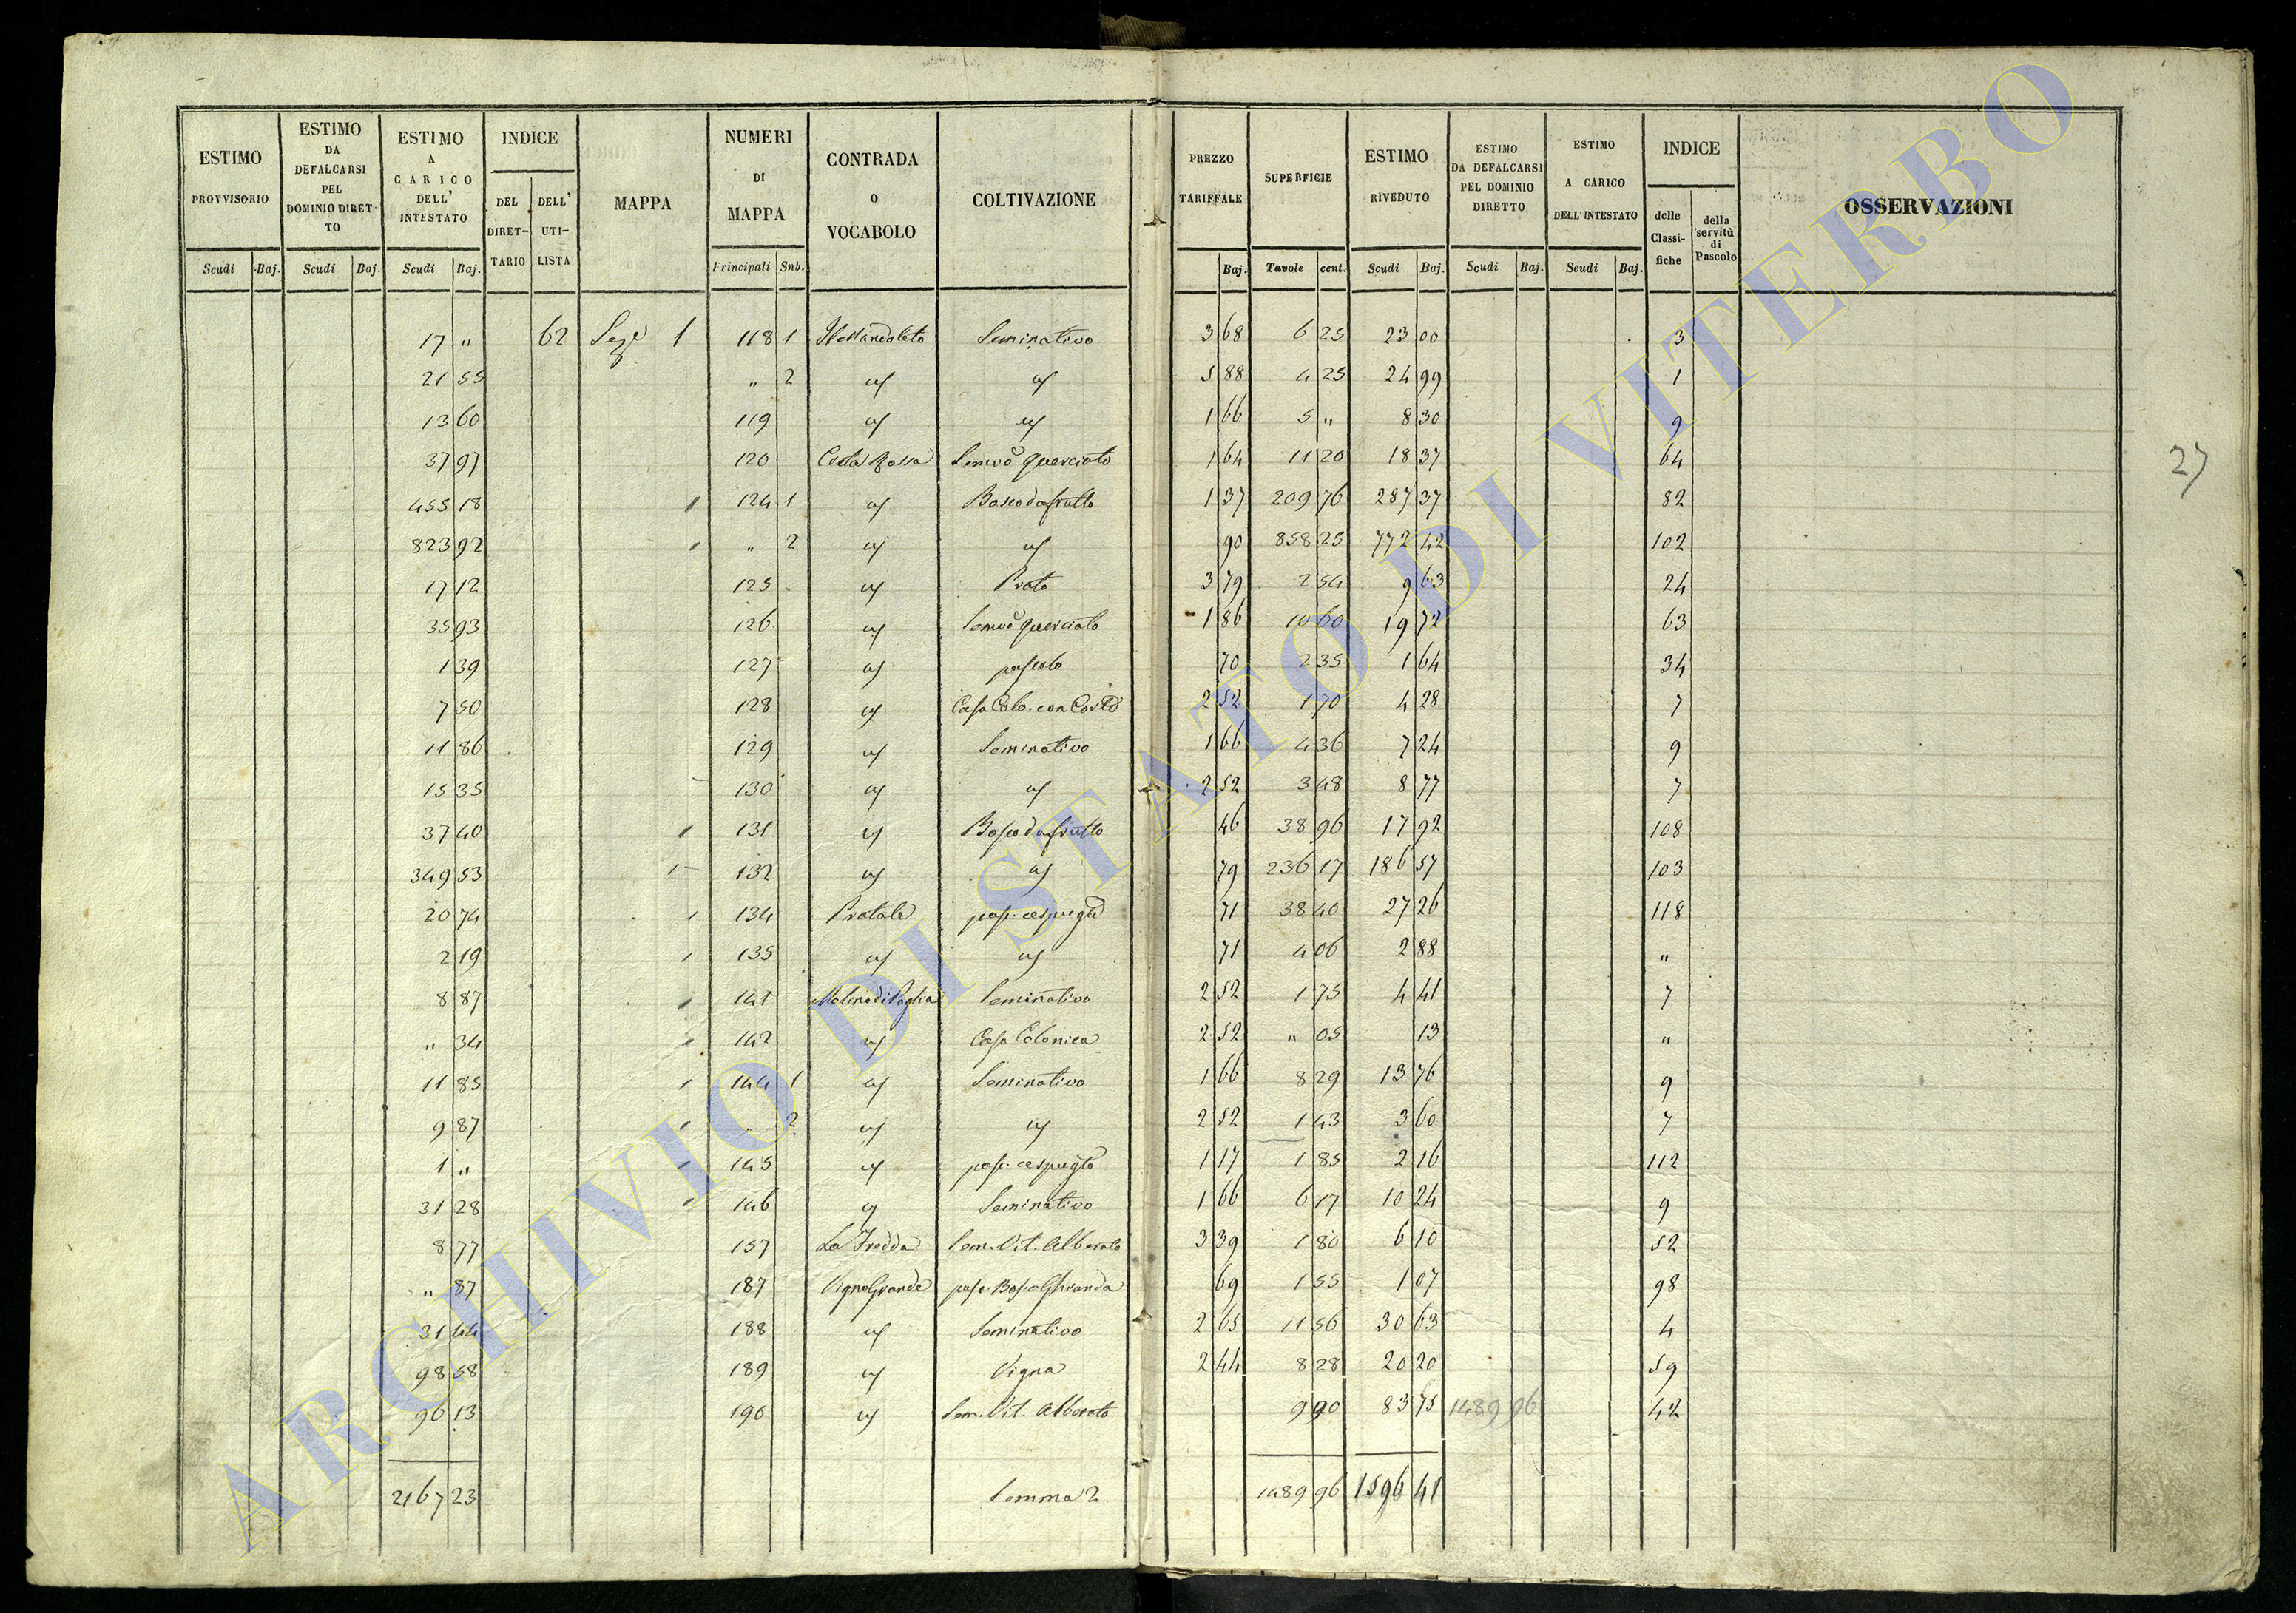 ESTIMO PROVVISORIO | ESTIMO DA DEFALCARSI PEL DOMINIO DIRETTO | ESTIMO A CARICO DELL' INTESTATO | INDICE DEL DIRETTARIO | DELL' UTILISTA | MAPPA | NUMERI DI MAPPA | CONTRADA o VOCABOLO | COLTIVAZIONE | PREZZO TARIFFALE | SUPERFICIE | ESTIMO RIVEDUTO | ESTIMO DA DEFALCARSI PEL DOMINIO DIRETTO | ESTIMO A CARICO DELL' INTESTATO | INDICE delle Classifiche | della servitù di Pascolo | OSSERVAZIONI
Scudi Baj. | Scudi Baj. | Scudi Baj. | Principali Sub. | Baj. | Tavole cent. | Scudi Baj. | Scudi Baj. | Scudi Baj.
17 " | 62 | Seze 1 | 118 1 | Seminativo | 3 68 | 6 25 | 23 00 | 3
21 55 | " 2 | " | " | 5 88 | 4 25 | 24 99 | 1
13 60 | 119 | " | " | 1 66 | 5 " | 8 30 | 9
37 97 | 120 | Costa Rossa | Semvo Querciato | 1 64 | 11 20 | 18 37 | 64
455 18 | 1 | 124 1 | " | Bosco da frutto | 1 37 | 209 76 | 287 37 | 82
823 92 | 1 | " 2 | " | " | 90 | 858 25 | 772 42 | 102
17 12 | 125 | " | Prato | 3 79 | 2 54 | 9 63 | 24
35 93 | 126 | " | Semvo Querciato | 1 86 | 10 60 | 19 72 | 63
1 39 | 127 | " | pascolo | 70 | 2 35 | 1 64 | 34
7 50 | 128 | " | Casa Colo. con Corte | 2 52 | 1 70 | 4 28 | 7
11 86 | 129 | " | Seminativo | 1 66 | 4 36 | 7 24 | 9
15 35 | 130 | " | " | 2 52 | 3 48 | 8 77 | 7
37 40 | 1 | 131 | " | Bosco da frutto | 46 | 38 96 | 17 92 | 108
349 53 | 1 | 132 | " | " | 79 | 236 17 | 186 57 | 103
20 74 | 1 | 134 | Pratale | pasc. cespugto | 71 | 38 40 | 27 26 | 118
2 19 | 1 | 135 | " | " | 71 | 4 06 | 2 88 | "
8 87 | 1 | 141 | Molino di Paglia | Seminativo | 2 52 | 1 75 | 4 41 | 7
" 34 | 1 | 142 | " | Casa Colonica | 2 52 | " 05 | 13 | "
11 85 | 1 | 144 1 | " | Seminativo | 1 66 | 8 29 | 13 76 | 9
9 87 | 1 | " 2 | " | " | 2 52 | 1 43 | 3 60 | 7
1 " | 1 | 145 | " | pasc. cespugto | 1 17 | 1 85 | 2 16 | 112
31 28 | 1 | 146 | " | Seminativo | 1 66 | 6 17 | 10 24 | 9
8 77 | 157 | La Fredda | Sem. Vit. Alberato | 3 39 | 1 80 | 6 10 | 52
" 87 | 187 | Vigna Grande | pasc. Bosc. Ghianda | 69 | 1 55 | 1 07 | 98
31 44 | 188 | " | Seminativo | 2 65 | 11 56 | 30 63 | 4
98 58 | 189 | " | Vigna | 2 44 | 8 28 | 20 20 | 59
96 13 | 190 | " | Sem. Vit. Alberato | 9 90 | 83 75 | 1489 96 | 42
2167 23 | Somma 2 | 1489 96 | 1596 41
27
ARCHIVIO DI STATO DI VITERBO